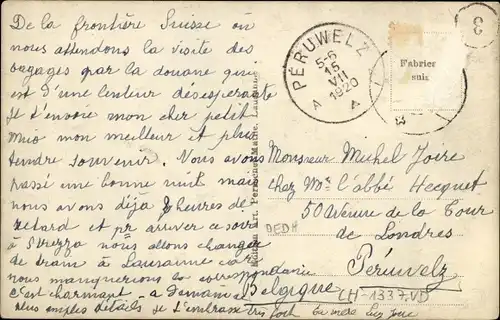 De la frontière Suisse où
nous attendons la visite des
bagages par la douane qui
est d'une lenteur désespérante
je t'envoie mon cher petit
mio mon meilleur et plus
tendre souvenir. Vous avons
passé une bonne nuit mais
nous avons déjà 2 heures de
retard et pr arriver ce soir
à Strezza nous allons changer
de tram à Lausanne car
nous manquerions la correspondance
c'est charmant - à demain
plus amples détails Je t'embrasse très fort
PÉRUWELZ
5-6
15
VII
1920
A A
3
Fabrier
suis
Monsieur Michel Joire
chez Mr l'abbé Hecquet
50 Avenue de la Tour
de Londres
Péruwelz
Belgique
DEDH
LH-1337.VD